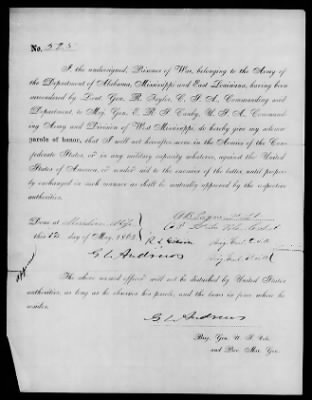 No. 525
I, the undersigned, Prisoner of War, belonging to the Army of
the Department of Alabama, Mississippi and East Louisiana, having been
surrendered by Lieut. Gen. R. Taylor, C. S. A., Commanding said
Department, to Maj. Gen. E. R. S. Canby, U. S. A., Command-
ing Army and Division of West Mississippi, do hereby give my solemn
parole of honor, that I will not hereafter serve in the Armies of the Con-
federate States, or in any military capacity whatever, against the United
States of America, or render aid to the enemies of the latter, until proper-
ly exchanged in such manner as shall be mutually approved by the respective
authorities.
Done at Meridian Miss
this 12 day of May, 1865
G. L. Andrews
The above named officer will not be disturbed by United States
authorities, as long as he observes his parole, and the laws in force where he
resides.
G L Andrews
Brig. Gen. U. S. Vols.
and Pro. Mar. Gen.